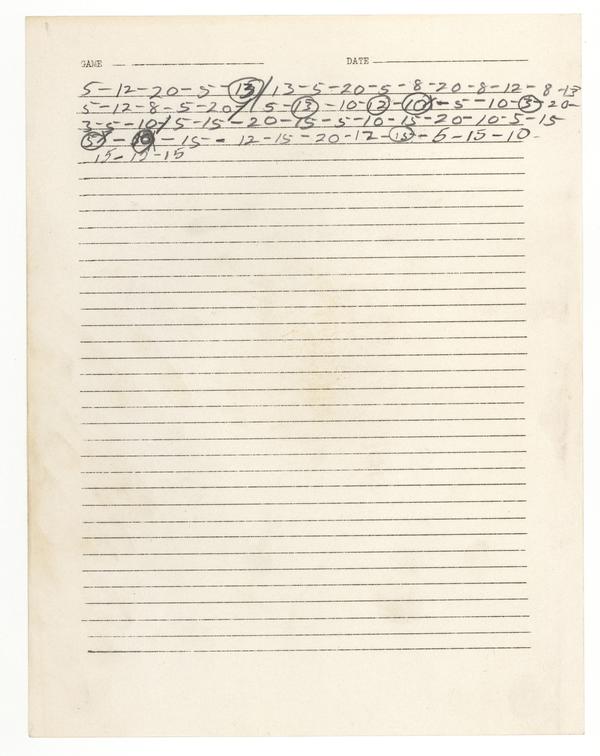 GAME DATE
5-12-20-5-13/13-5-20-5-8-20-8-12-8-13
5-12-8-5-20/5-13-10-12-10-5-10-3-20-
3-5-10/5-15-20-15-5-10-15-20-10-5-15
5-10-15-12-15-20-12-15-5-15-10-
15-15-15